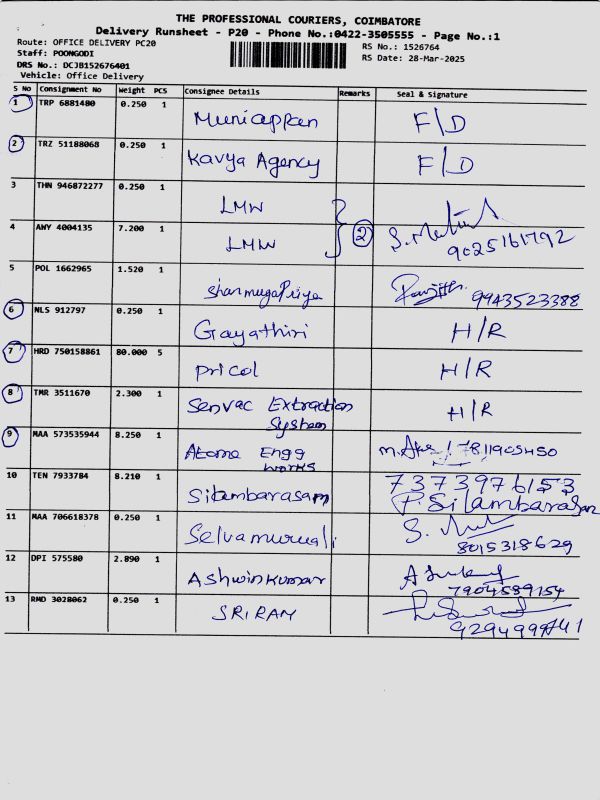 THE PROFESSIONAL COURIERS, COIMBATORE
Delivery Runsheet - P20 - Phone No.:0422-3505555 - Page No.:1
Route: OFFICE DELIVERY PC20
RS No.: 1526764
Staff: POONGODI
RS Date: 28-Mar-2025
DRS No.: DCJB152676401
Vehicle: Office Delivery
S No Consignment No Weight PCS Consignee Details Remarks Seal & Signature
1 TRP 6881480 0.250 1 Muniappan F/D
2 TRZ 51188068 0.250 1 Kavya Agency F/D
3 THN 946872277 0.250 1 LMW
4 ANY 4004135 7.200 1 LMW 2
9025161792
5 POL 1662965 1.520 1 ShanmugaPriya 9943523388
6 NLS 912797 0.250 1 Gayathiri H/R
7 HRD 750158861 80.000 5 Pricol H/R
8 TMR 3511670 2.300 1 Senvac Extraction H/R
System
9 MAA 573535944 8.250 1 Atome Engg 7811905450
Works
10 TEN 7933784 8.210 1 Silambarasam 7373976153
P. Silambarasan
11 MAA 706618378 0.250 1 Selvamurugali
8015318629
12 DPI 575580 2.890 1 Ashwinkumar
7904589154
13 RMD 3028062 0.250 1 SRIRAM